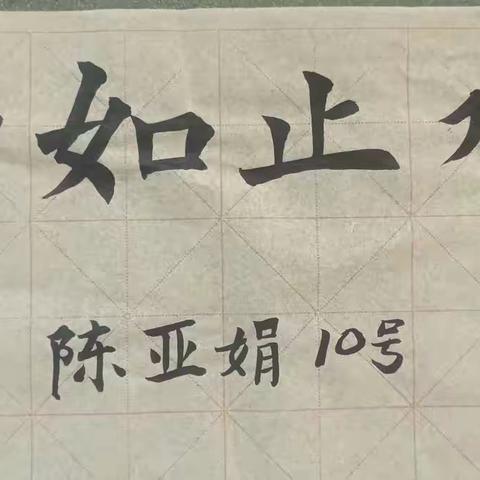 如止
陈亚娟 10号